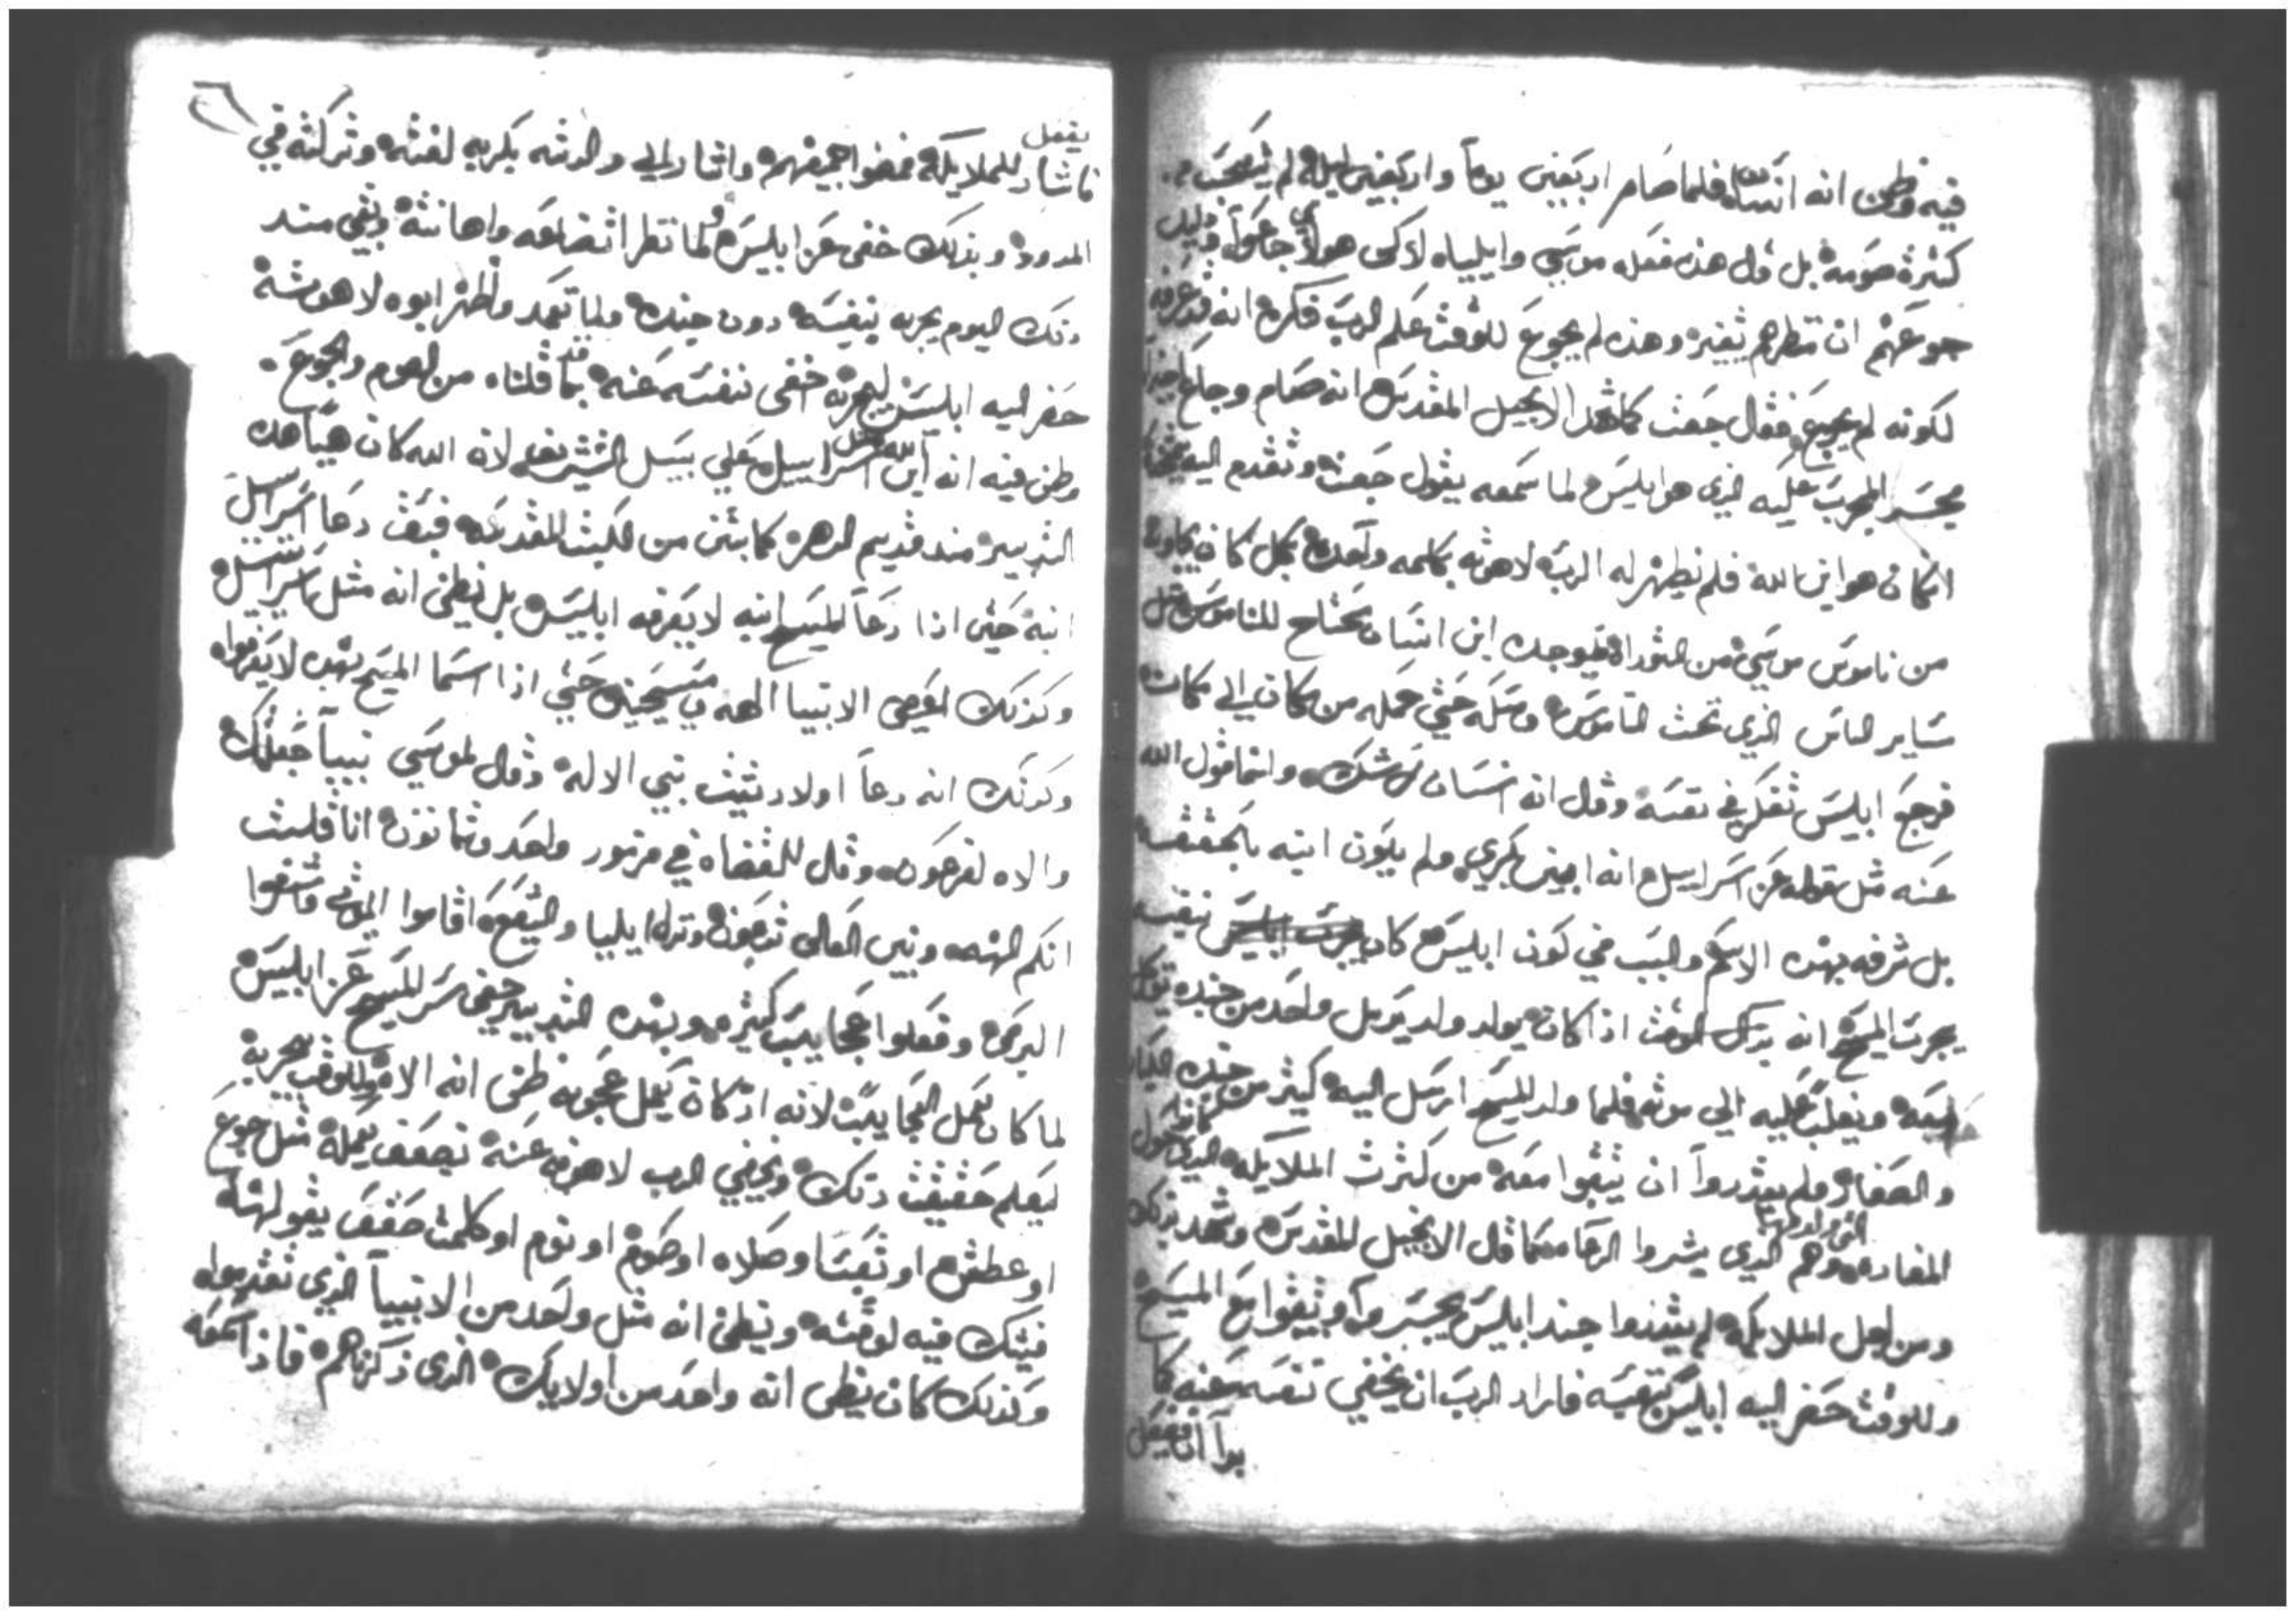 فيه وظن انه انسان فلما صام اربعين يوماً واربعين ليله لم يتعجب من
كثرة صومه بل قال هذه فعله موسي وايلياه لاكن هولاي جاعوا قليل
جوعهم ان تنظرهم وهذه لم يجوع للوقت علم الرب فكره انه قد عرفه
لكونه لم يجوع فقال جعت كما شهد الانجيل المقدس انه صام وجاع اخيرا
فجسر المجرب عليه الذي هو ابليس لما سمعه يقول جعت وتقدم اليه
انكان هو ابن الله فلم يظهر له الرب لاهوته بكلمه واحده بل كان يجاوبه
من ناموس موسي من التوراة فوجده ابن انسان يحتاج للناموس مثل
ساير الناس الذي تحت الناموس ومسكه حتي حمله من مكان الي مكان
فرجع ابليس تفكر في نفسه وقال انه انسان بلا شك وانما قول الله
عنه مثل قوله عن اسراييل انه ابني بكري ولم يكون ابنه بالحقيقه
بل شرفه بهذه الاسم والسبب في كون ابليس كان بنفسه
يجرب المسيح انه بدلك الوقت اذا كان يولد ولد يرسل واحد من جنده
معه ويغلب عليه الي موته فلما ولد المسيح ارسل اليه كثير من جنده الكبار
والصغار ولم يقدروا ان يثبتوا معه من كثرت الملايكه الذي حول
المغاره التي ولد فيها وهم الذي بشروا الرعاه كما قال الانجيل المقدس وشهد بذلك
ومن اجل الملايكه لم يقدروا جند ابليس يجسروا ويثبتوا مع المسيح
وللوقت حضر اليه ابليس بنفسه فاراد الرب ان يخفي نفسه عنه كما
برا ان يفعل
يفعل
فاشار للملايكه فمضوا اجميعهم واشار الي والدته بكريه لفته وتركته في
المدود وبذلك خفي عن ابليس ولما نظر اتضاعه واهانته وبقي منذ
ذلك اليوم يجربه بنفسه دون جنده ولما تعمد واظهر ابوه لاهوته
حضر اليه ابليس ليجربه اخفي نفسه عنه بما قد قلناه من الصوم والجوع
وظن فيه انه ابن الله مثل اسراييل علي سبيل التشريف لان الله كان هيأ هذه
التدبير منذ قديم الدهر كما بين من الكتب المقدسه فبقت دعا اسراييل
ابنه حتي اذا دعا المسيح ابنه لا يعرفه ابليس بل يظن انه مثل اسراييل
وكذلك ايضي الانبيا الهه ومسيحين حتي اذا اسما المسيح بهذه لا يعرفوه
وكذلك انه دعا اولاد شيث بني الاله وقال لموسي نبياً جعلتك
والاه لفرعون وقال للقضاه في مزمور واحد وثمانون انا قلت
انكم الهه وبني العالي تدعون وترك ايليا واليشع اقاموا الموتي وشفوا
البرص وفعلوا عجايب كثيره وبهذه التدبير خفي سر المسيح عن ابليس
لما كان يعمل العجايب لانه اذ كان يعمل عجوبه ظن انه الاه وللوقت يجربه
ليعلم حقيقت ذلك ويخفي الرب لاهوته عنه بضعف يعمله مثل جوع
او عطش او تعب او صلاه او صوم او نوم او كلمت ضعف يقولها
فيشك فيه لوقته ويظن انه مثل واحد من الانبيا الذي تقدموا
وكذلك كان يظن انه واحد من اولايك الذي ذكرناهم فاذا سمعه